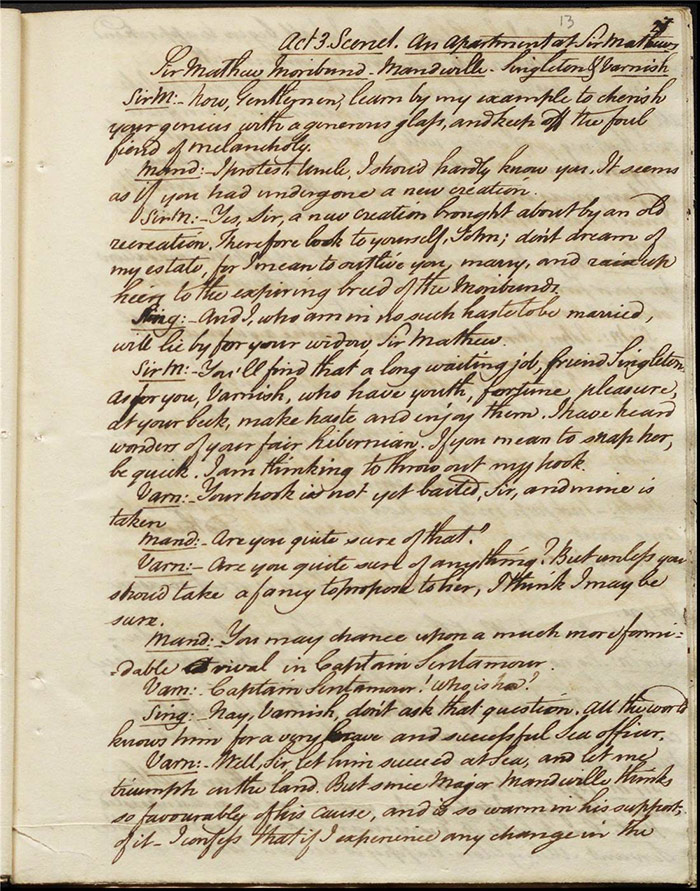 13
Act 3. Scene 1. An apartment at Sir Mathews
Sir Mathew Moribund - Mandville - Singleton & Varnish
Sir M:- Now, Gentlemen, learn by my example to cherish
your genius with a generous glass, and keep off the foul
fiend of melancholy.
Mand:- I protest, Uncle, I shou'd hardly know you. It seems
as if you had undergone a new creation.
Sir M:- Yes, Sir, a new creation brought about by an old
recreation. Therefore look to yourself, John; dont dream of
my estate, for I mean to outlive you, marry, and raise up
heirs to the expiring breed of the Moribunds
Sing:- And I, who am in no such haste to be married,
will lie by for your widow, Sir Mathew.
Sir M:- You'll find that a long waiting job, friend Singleton.
As for you, Varnish, who have youth, fortune, pleasure,
at your beck, make haste and enjoy them. I have heard
wonders of your fair hibernian. If you mean to snap her,
be quick. I am thinking to throw out my hook.
Varn:- Your hook is not yet baited, Sir, and mine is
taken
Mand:- Are you quite sure of that?
Varn:- Are you quite sure of anything? But unless you
shou'd take a fancy to propose to her, I think I may be
sure.
Mand:- You may chance upon a much more formi-
-dable rival in Captain Sentamour.
Varn:- Captain Sentamour! Who is he?
Sing:- Nay, Varnish, dont ask that question. All the world
knows him for a very brave and successful Sea officer.
Varn:- Well, Sir, let him succeed at Sea, and let me
triumph on the land. But since Major Mandville thinks
so favourably of his cause, and is so warm in his support
of it - I confess that if I experience any change in the